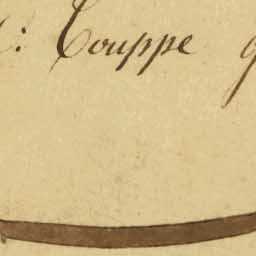 : Couppe